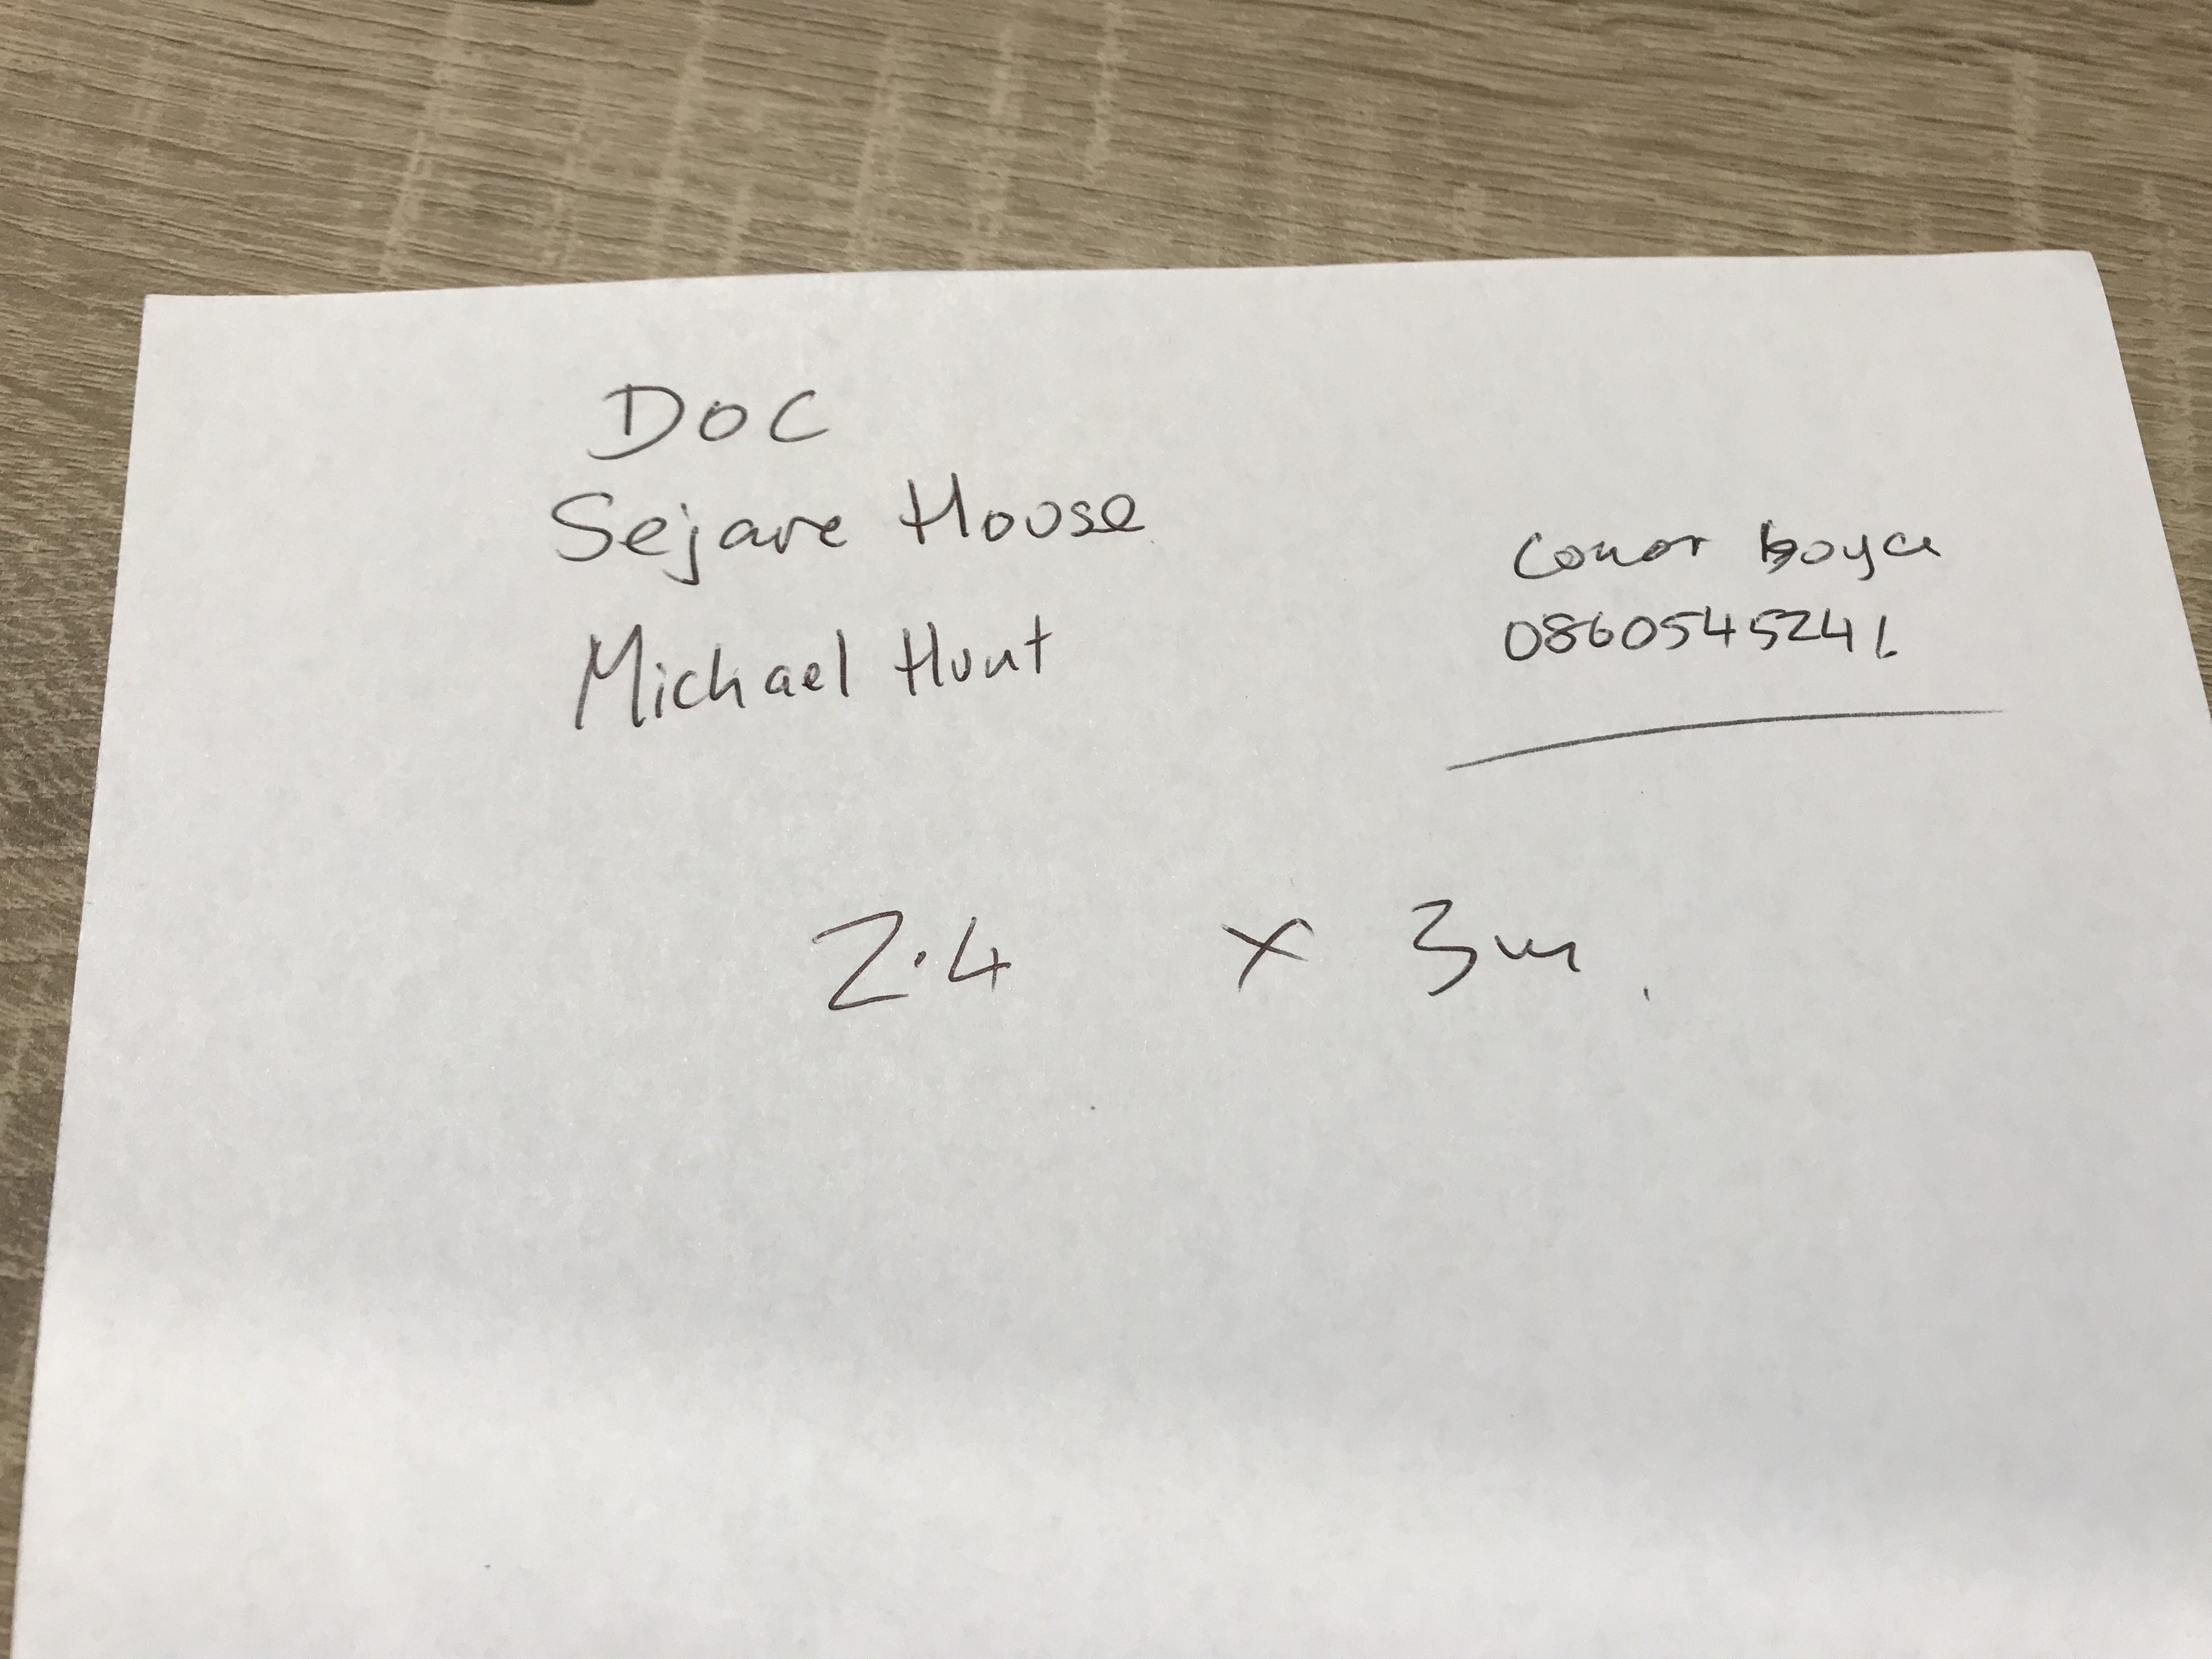 DOC
Sejare House
Michael Hunt
Conor boyce
0860545241.
2.4 x 3m.